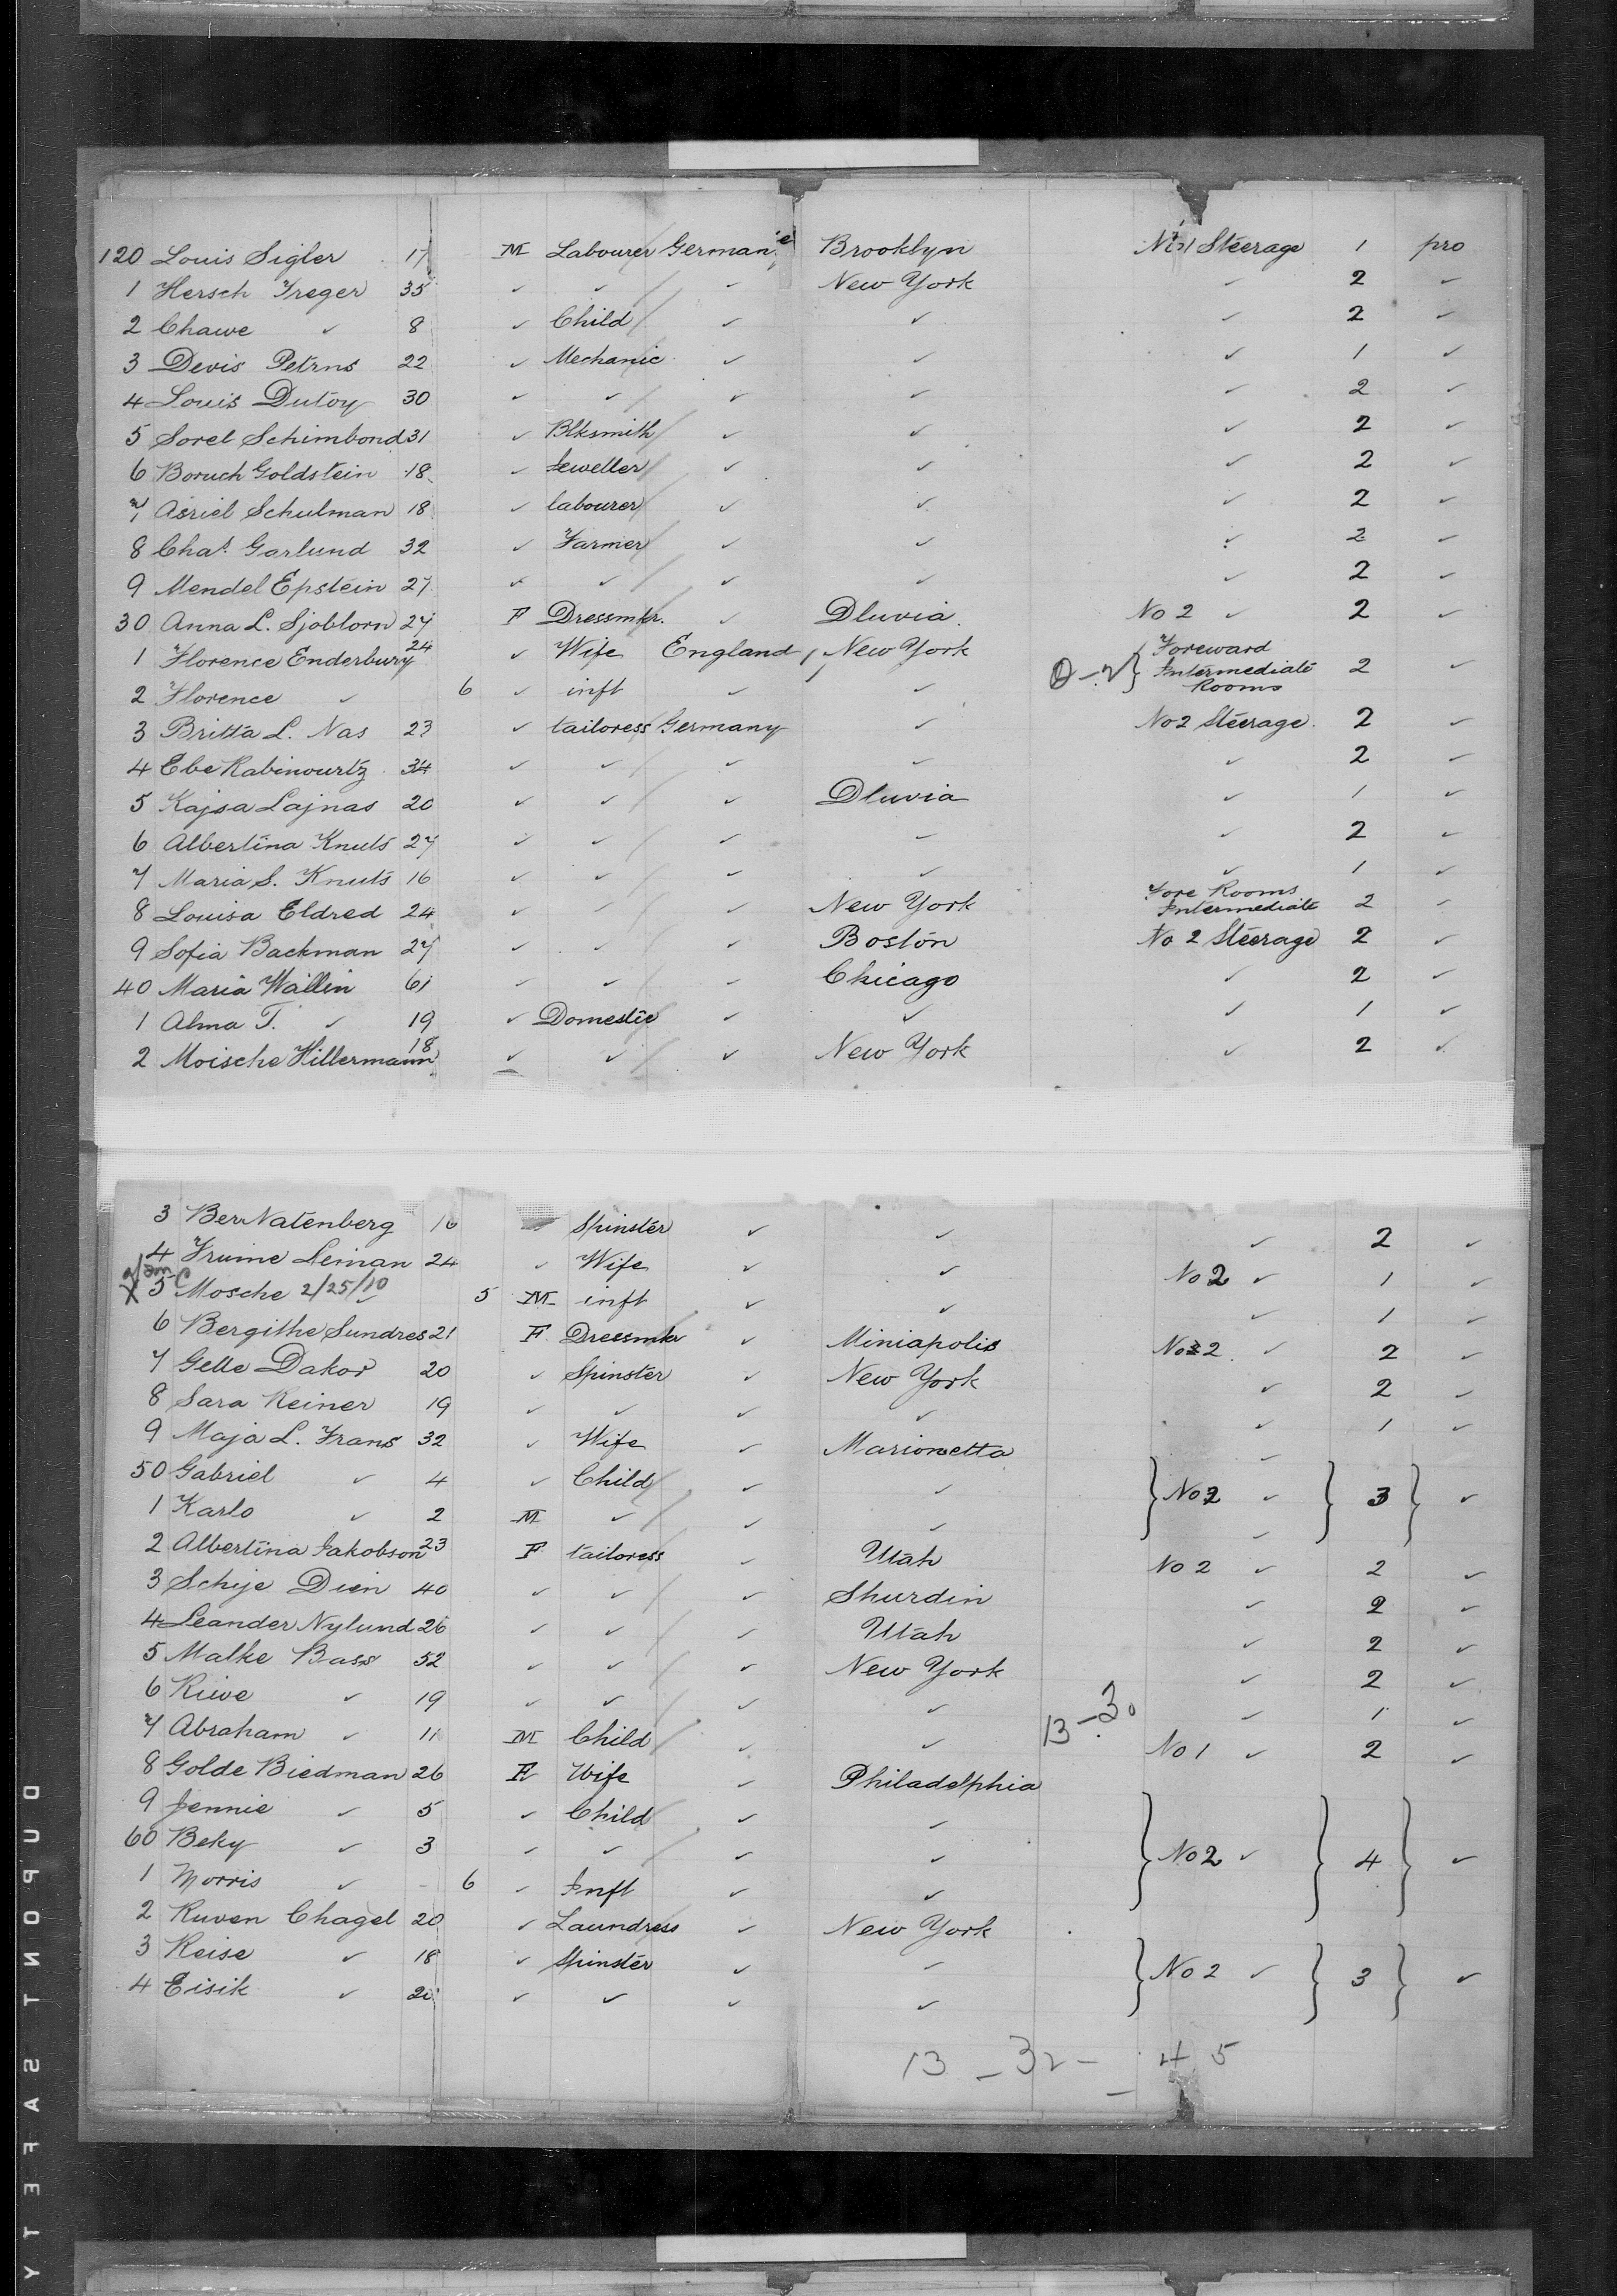 120 Louis Sigler 17 M Labourer German Brooklyn No 1 Steerage 1 pro
1 Hersch Treger 35 ✓ ✓ ✓ New York ✓ 2 ✓
2 Chawe ✓ 8 ✓ Child ✓ ✓ ✓ 2 ✓
3 Devis Petrns 22 ✓ Mechanic ✓ ✓ ✓ 1 ✓
4 Louis Dutoy 30 ✓ ✓ ✓ ✓ ✓ 2 ✓
5 Sorel Schimbond 31 ✓ Blksmith ✓ ✓ ✓ 2 ✓
6 Boruch Goldstein 18 ✓ Jeweller ✓ ✓ ✓ 2 ✓
7 Asriel Schulman 18 ✓ labourer ✓ ✓ ✓ 2 ✓
8 Chas. Garlund 32 ✓ Farmer ✓ ✓ ✓ 2 ✓
9 Mendel Epstein 27 ✓ ✓ ✓ ✓ ✓ 2 ✓
30 Anna L. Sjoblorn 27 F Dressmkr. ✓ Dluvia. No 2 ✓ 2 ✓
1 Florence Enderbury 24 ✓ Wife England New York Foreward Intermediate Rooms 2 ✓
2 Florence ✓ 6 ✓ inft ✓ ✓
3 Britta L. Nas 23 ✓ tailoress Germany ✓ No 2 Steerage 2 ✓
4 Ebe Rabinourtz 34 ✓ ✓ ✓ ✓ ✓ 2 ✓
5 Kajsa Lajnas 20 ✓ ✓ ✓ Dluvia ✓ 1 ✓
6 Albertina Knuts 27 ✓ ✓ ✓ ✓ ✓ 2 ✓
7 Maria S. Knuts 16 ✓ ✓ ✓ ✓ ✓ 1 ✓
8 Louisa Eldred 24 ✓ ✓ ✓ New York Fore Rooms Intermediate 2 ✓
9 Sofia Backman 27 ✓ ✓ ✓ Boston No 2 Steerage 2 ✓
40 Maria Wallin 61 ✓ ✓ ✓ Chicago ✓ 2 ✓
1 Alma T. ✓ 19 ✓ Domestic ✓ ✓ ✓ 1 ✓
2 Moische Hillermann 18 ✓ ✓ ✓ New York ✓ 2 ✓
3 Ber Natenberg 16 Spinster ✓ ✓ ✓ 2 ✓
4 Frume Leinan 24 ✓ Wife ✓ ✓ No 2 ✓ 1 ✓
X 5 Mosche 2/25/10 ✓ 5 M inft ✓ ✓ ✓ 1 ✓
6 Bergithe Sundres 21 F Dressmkr ✓ Miniapolis No 2 ✓ 2 ✓
7 Gelle Dakor 20 ✓ Spinster ✓ New York ✓ 2 ✓
8 Sara Reiner 19 ✓ ✓ ✓ ✓ ✓ 1 ✓
9 Maja L. Frans 32 ✓ Wife ✓ Marionetta ✓
50 Gabriel ✓ 4 ✓ Child ✓ ✓ No 2 ✓ 3 ✓
1 Karlo ✓ 2 M ✓ ✓ ✓ ✓
2 Albertina Jakobson 23 F tailoress ✓ Utah No 2 ✓ 2 ✓
3 Schije Dien 40 ✓ ✓ ✓ Shurdin ✓ 2 ✓
4 Leander Nylund 26 ✓ ✓ ✓ Utah ✓ 2 ✓
5 Malke Bass 52 ✓ ✓ ✓ New York ✓ 2 ✓
6 Riwe ✓ 19 ✓ ✓ ✓ ✓ ✓ 1 ✓
7 Abraham ✓ 11 M Child ✓ ✓ 13 - 30 No 1 ✓ 2 ✓
8 Golde Biedman 26 F Wife ✓ Philadelphia
9 Jennie ✓ 5 ✓ Child ✓ ✓
60 Beky ✓ 3 ✓ ✓ ✓ ✓ No 2 ✓ 4 ✓
1 Morris ✓ 6 ✓ Inft ✓ ✓
2 Ruven Chagel 20 ✓ Laundress ✓ New York
3 Reise ✓ 18 ✓ Spinster ✓ ✓ No 2 ✓ 3 ✓
4 Eisik ✓ 20 ✓ ✓ ✓ ✓
13 - 32 - 45
DUPONT SAFETY